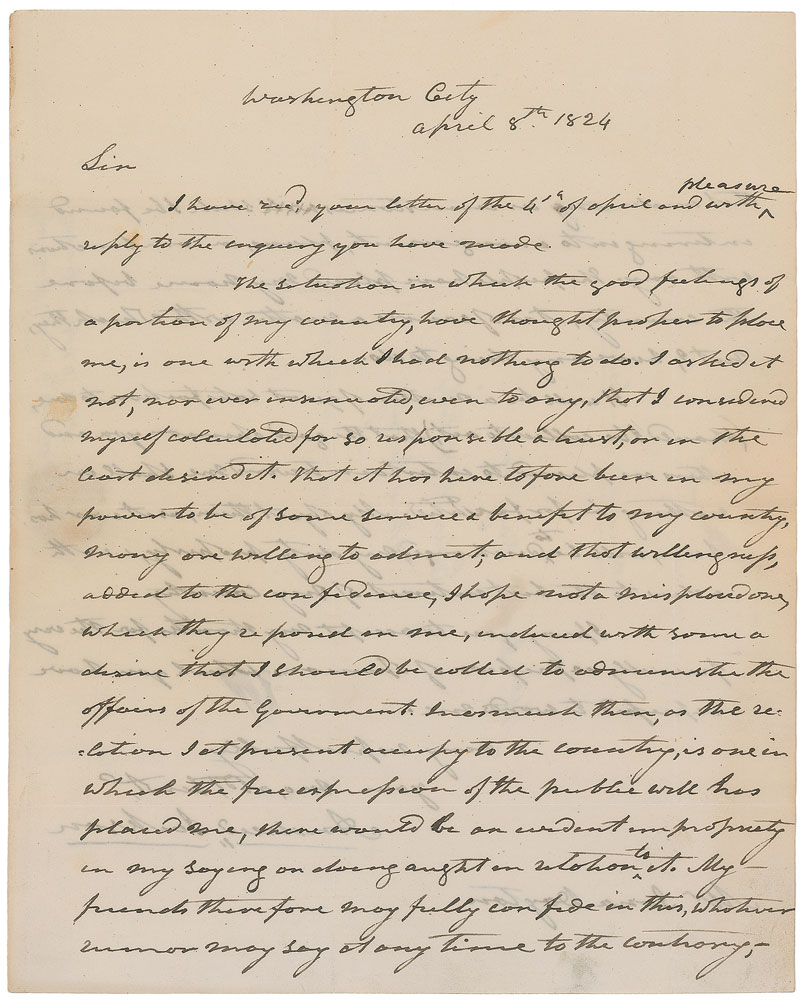 Washington City
April 8th. 1824
Sir
pleasure
I have recd. your letter of the 4th of april and with ^
reply to the enquiry you have made.
The situation in which the good feelings of
a portion of my country, have thought proper to place
me, is one with which I had nothing to do. I asked it
not, nor ever insinuated, even to any, that I considered
myself calculated for so responsible a trust, or in the
least desired it. That it has here tofore been in my
power to be of some service & benefit to my country,
many are willing to admit; and that willingness,
added to the confidence, I hope not a misplaced one,
which they reposed in me, induced with some a
desire that I should be called to administer the
affairs of the Goverment. Inasmuch then, as the re-
-lation I at present occupy to the country, is one in
which the free expression of the public will has
placed me, there would be an evident impropriety
in my saying or doing aught in relation ^to it. My
friends therefore may fully confide in this, whatever
rumor may say at any time to the contrary,-